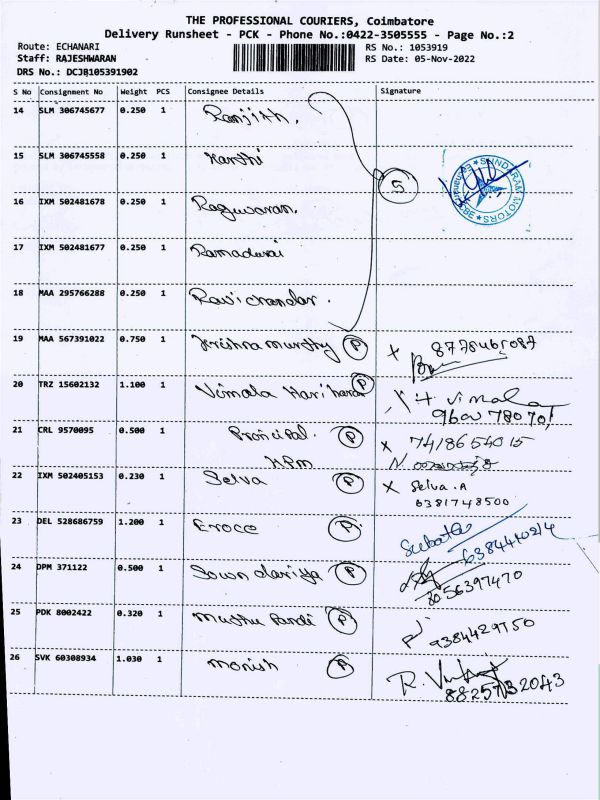 THE PROFESSIONAL COURIERS, Coimbatore
Delivery Runsheet - PCK - Phone No.:0422-3505555 - Page No.:2
Route: ECHANARI
RS No.: 1053919
Staff: RAJESHWARAN
RS Date: 05-Nov-2022
DRS No.: DCJB105391902
S No Consignment No Weight PCS Consignee Details Signature
14 SLM 306745677 0.250 1 Ranjith.
15 SLM 306745558 0.250 1 Karthi
5
SUNDARAM MOTORS
16 IXM 502481678 0.250 1 Raguvaran.
17 IXM 502481677 0.250 1 Ramadurai
18 MAA 295766288 0.250 1 Ravichandar.
19 MAA 567391022 0.750 1 Krishna murthy P X 8778465087
20 TRZ 15602132 1.100 1 Vimala Hariharan P H. vimala
9600 78070!
21 CRL 9570095 0.500 1 Principal. P X 7418654015
KPM
22 IXM 502405153 0.230 1 Selva P X Selva.A
6381748500
23 DEL 528686759 1.200 1 Eroco P
24 DPM 371122 0.500 1 Sowndariya P
8056397470
25 PDK 8002422 0.320 1 Muthu Pandi P 9384429750
26 SVK 60308934 1.030 1 Monish P
8825732043